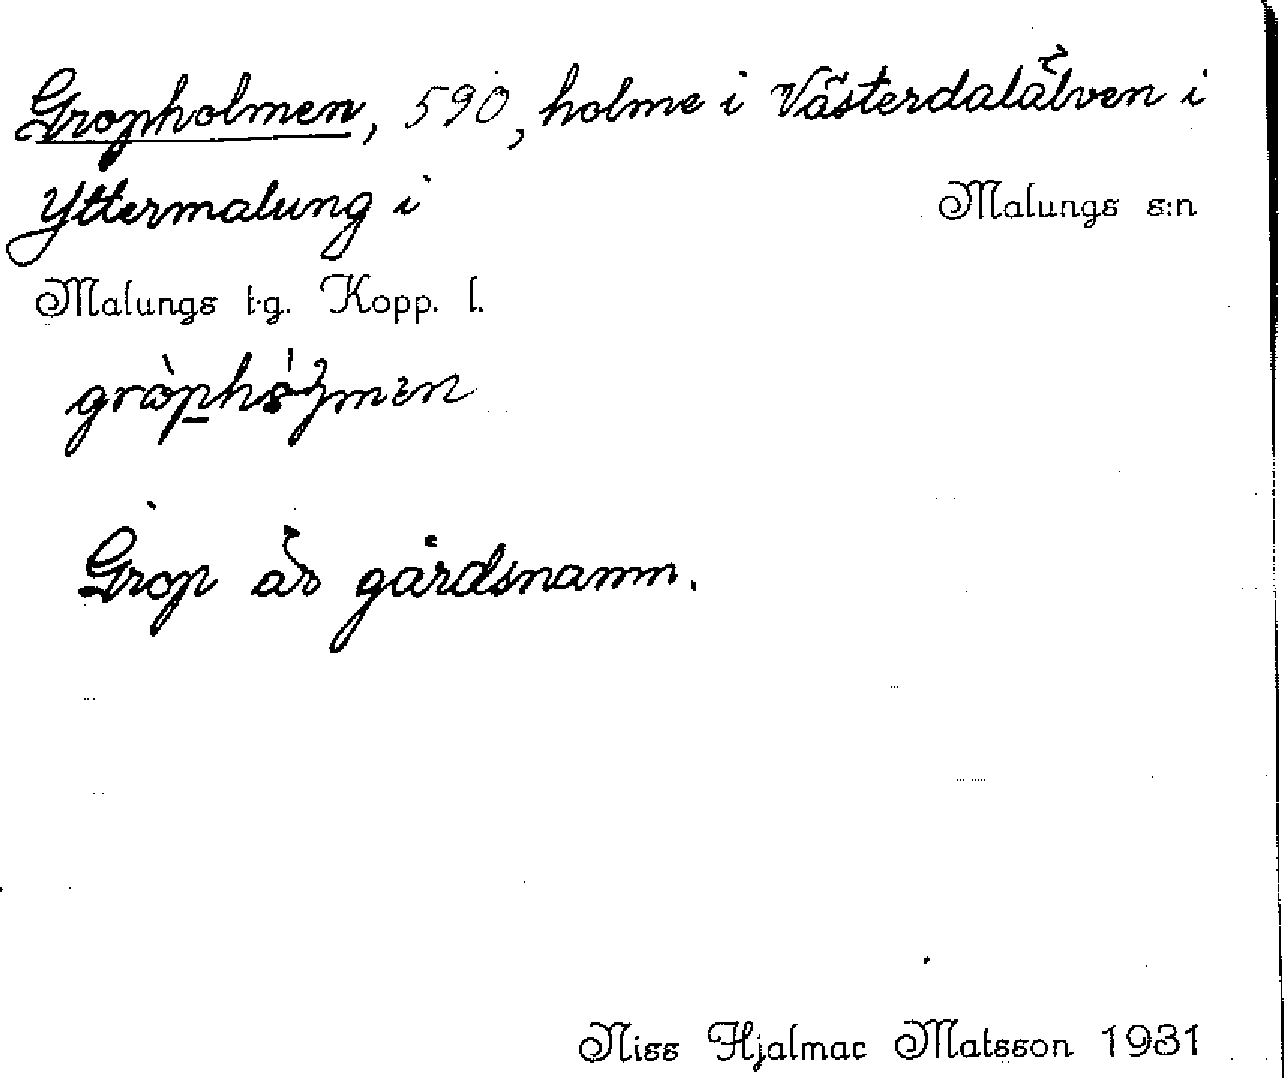 Gropholmen, 590, holme i Västerdalälven i
Yttermalung i Malungs s:n
Malungs t.g. Kopp. l.
Grop är gårdsnamn.
Niss Hjalmar Matsson 1931